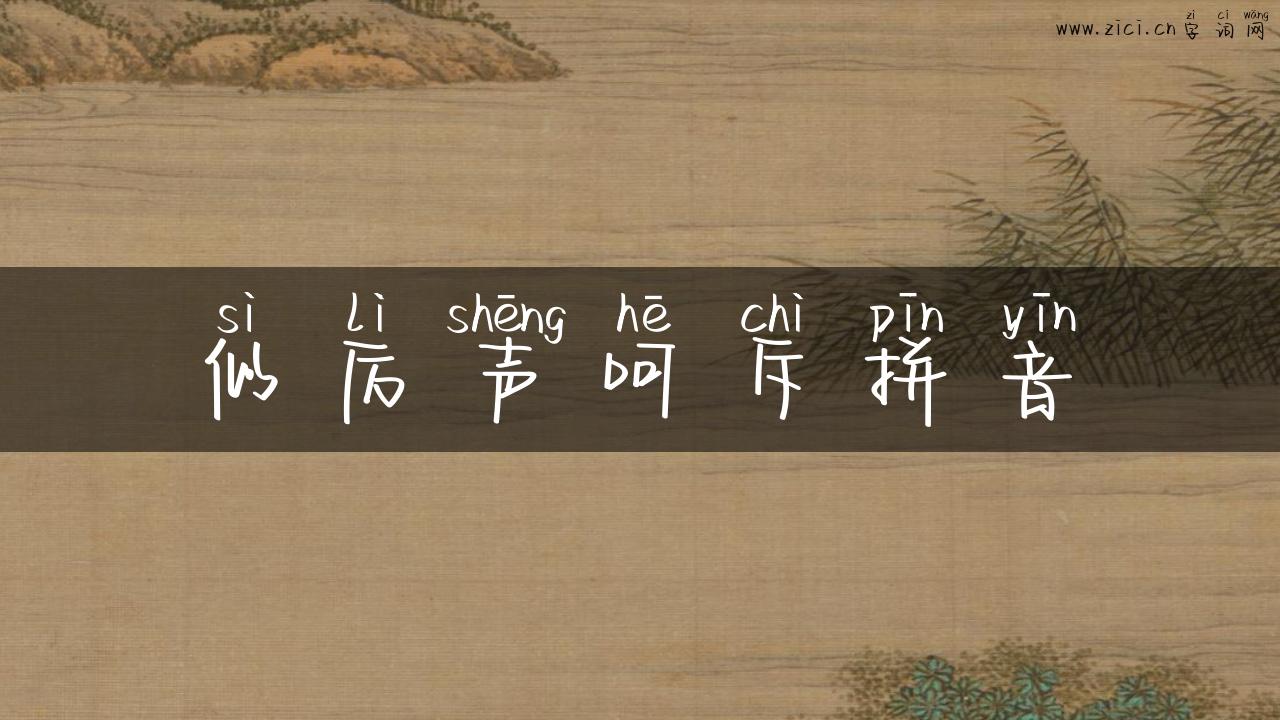 zì cí wǎng
www.zici.cn 字词网
sì lì shēng hē chì pīn yīn
似厉声呵斥拼音